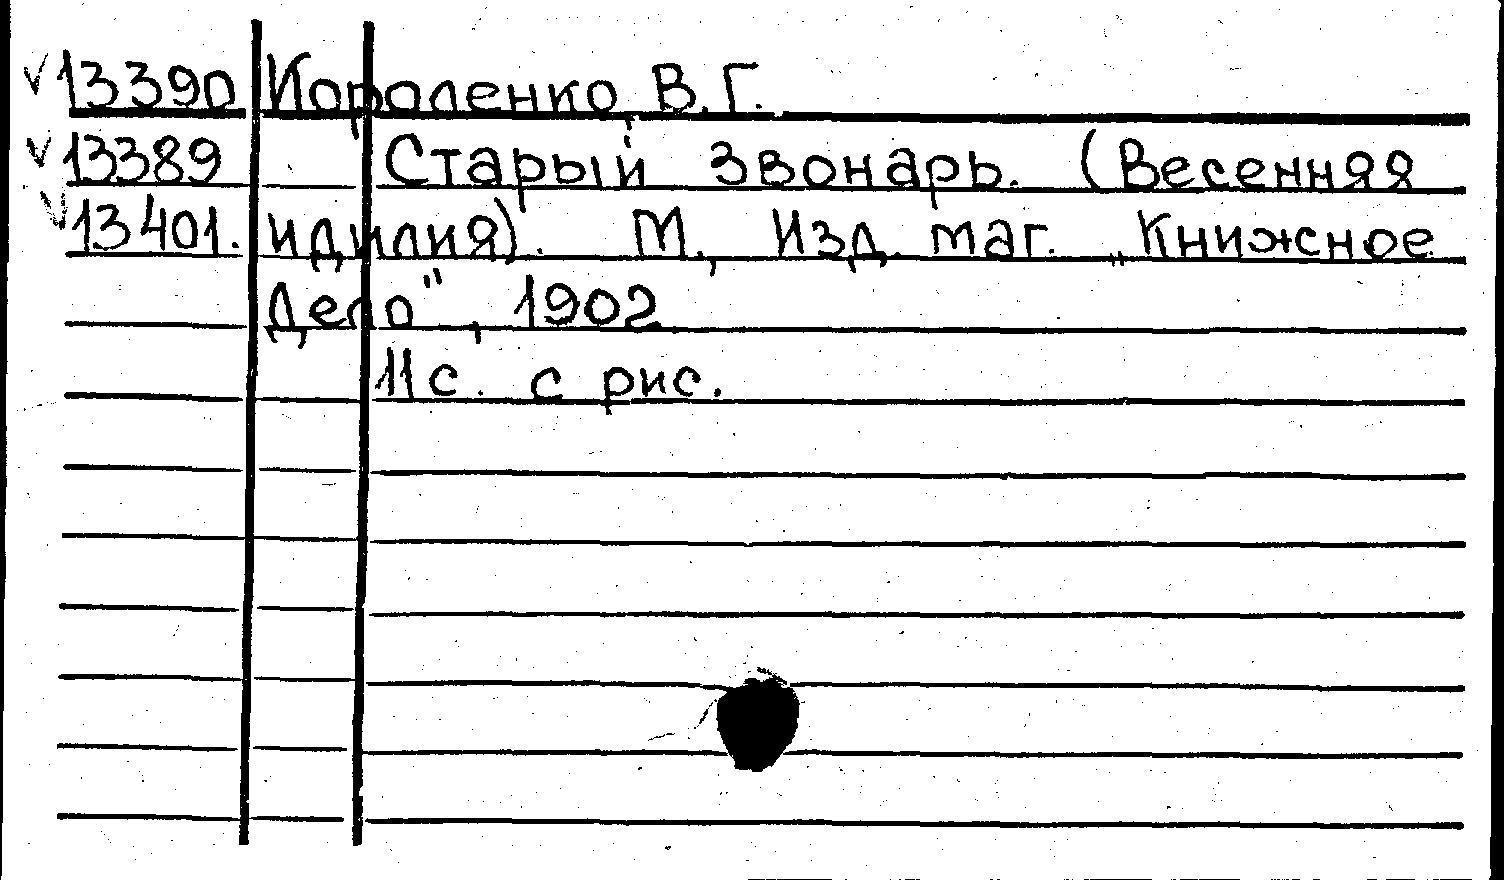 √ 13390 Короленко В.Г.
√ 13389 Старый звонарь. (Весенняя
√ 13401. идилия). М., Изд. маг. „Книжное
Дело", 1902
11с. с рис.